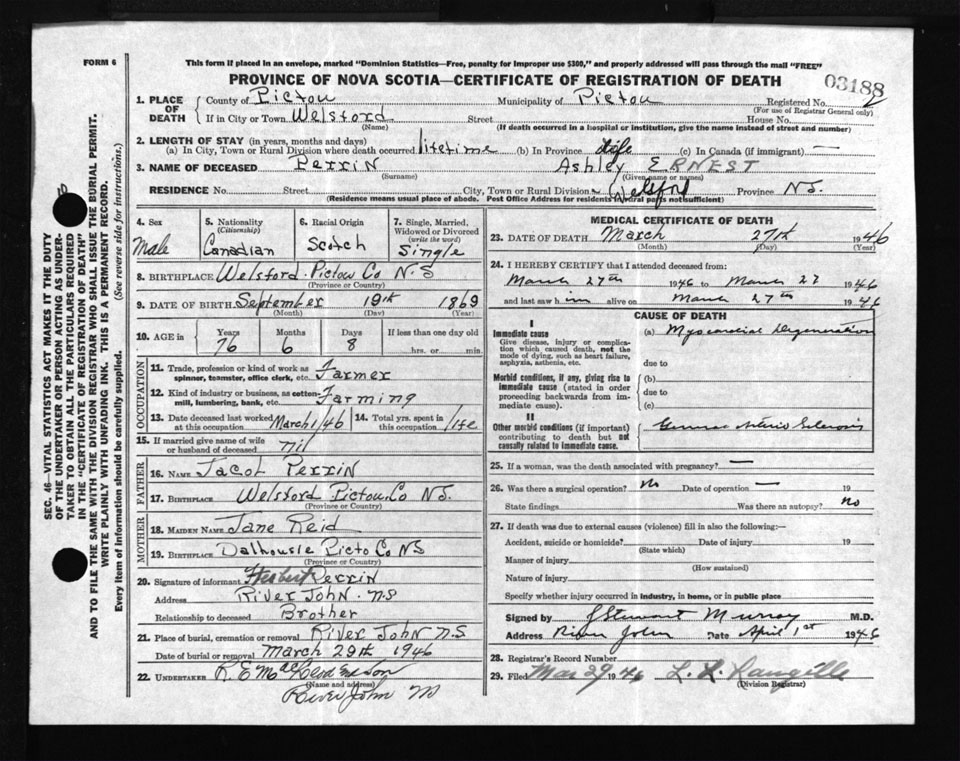 FORM 6
This form if placed in an envelope, marked "Dominion Statistics—Free, penalty for improper use $300," and properly addressed will pass through the mail "FREE"
PROVINCE OF NOVA SCOTIA—CERTIFICATE OF REGISTRATION OF DEATH
03188
1. PLACE OF DEATH
County of Pictou Municipality of Pictou Registered No. 2
(For use of Registrar General only)
If in City or Town Welsford Street House No.
(Name) (If death occurred in a hospital or institution, give the name instead of street and number)
2. LENGTH OF STAY (in years, months and days)
(a) In City, Town or Rural Division where death occurred lifetime (b) In Province Life (c) In Canada (if immigrant) —
3. NAME OF DECEASED Perrin Ashley ERNEST
(Surname) (Given name or names)
RESIDENCE No. Street City, Town or Rural Division Welsford Province N.S.
(Residence means usual place of abode. Post Office Address for residents in rural parts not sufficient)
SEC. 46—VITAL STATISTICS ACT MAKES IT THE DUTY
OF THE UNDERTAKER OR PERSON ACTING AS UNDER-
TAKER TO OBTAIN ALL THE PARTICULARS REQUIRED
IN THE "CERTIFICATE OF REGISTRATION OF DEATH"
AND TO FILE THE SAME WITH THE DIVISION REGISTRAR WHO SHALL ISSUE THE BURIAL PERMIT.
WRITE PLAINLY WITH UNFADING INK. THIS IS A PERMANENT RECORD.
Every item of information should be carefully supplied. (See reverse side for instructions.)
4. Sex
Male
5. Nationality
(Citizenship)
Canadian
6. Racial Origin
Scotch
7. Single, Married,
Widowed or Divorced
(write the word)
Single
8. BIRTHPLACE Welsford Pictou Co N S
(Province or Country)
9. DATE OF BIRTH September 19th 1869
(Month) (Day) (Year)
10. AGE in
Years Months Days If less than one day old
76 6 8 hrs. or min.
OCCUPATION
11. Trade, profession or kind of work as
spinner, teamster, office clerk, etc. Farmer
12. Kind of industry or business, as cotton-
mill, lumbering, bank, etc. Farming
13. Date deceased last worked
at this occupation March/46
14. Total yrs. spent in
this occupation life
15. If married give name of wife
or husband of deceased nil
FATHER
16. NAME Jacob Perrin
17. BIRTHPLACE Welsford Pictou Co N.S.
(Province or Country)
MOTHER
18. MAIDEN NAME Jane Reid
19. BIRTHPLACE Dalhousie Picto Co NS
(Province or Country)
20. Signature of informant Herbert Perrin
Address River John. N.S
Relationship to deceased Brother
21. Place of burial, cremation or removal River John N.S
Date of burial or removal March 29th 1946
22. UNDERTAKER R. E. MacLeod and Son
(Name and address)
River John NS
MEDICAL CERTIFICATE OF DEATH
23. DATE OF DEATH March 27th 1946
(Month) (Day) (Year)
24. I HEREBY CERTIFY that I attended deceased from:
March 27th 1946 to March 27 1946
and last saw him alive on March 27th 1946
CAUSE OF DEATH
I
Immediate cause
Give disease, injury or complica-
tion which caused death, not the
mode of dying, such as heart failure,
asphyxia, asthenia, etc.
(a) Myocardial Degeneration
due to
Morbid conditions, if any, giving rise to
immediate cause (stated in order
proceeding backwards from im-
mediate cause).
(b)
due to
(c)
II
Other morbid conditions (if important)
contributing to death but not
causally related to immediate cause.
General Arterio Sclerosis
25. If a woman, was the death associated with pregnancy? —
26. Was there a surgical operation? No Date of operation — 19
State findings Was there an autopsy? No
27. If death was due to external causes (violence) fill in also the following:—
Accident, suicide or homicide? Date of injury 19
(State which)
Manner of injury
(How sustained)
Nature of injury
Specify whether injury occurred in industry, in home, or in public place
Signed by J Stewart Murray M.D.
Address River John Date April 1st 1946
28. Registrar's Record Number
29. Filed Mar 29 1946 L. L. Langille
(Division Registrar)